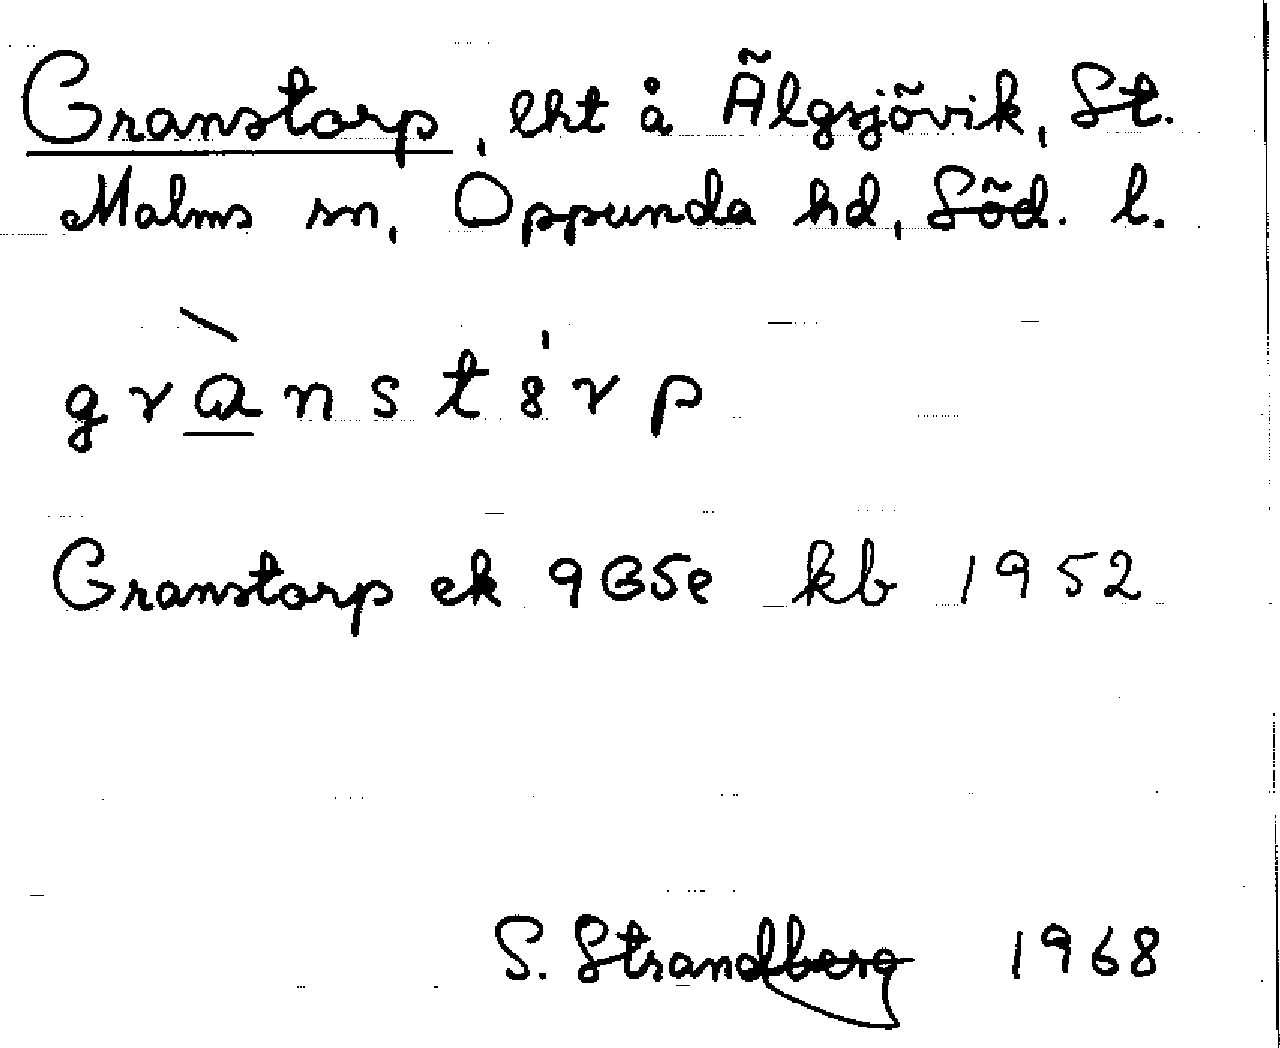 Granstorp, lht å Älgsjövik, St.
Malms sn, Oppunda hd, Söd. l.
grànstȣ́rp
Granstorp ek 9G5e kb 1952
S. Strandberg 1968